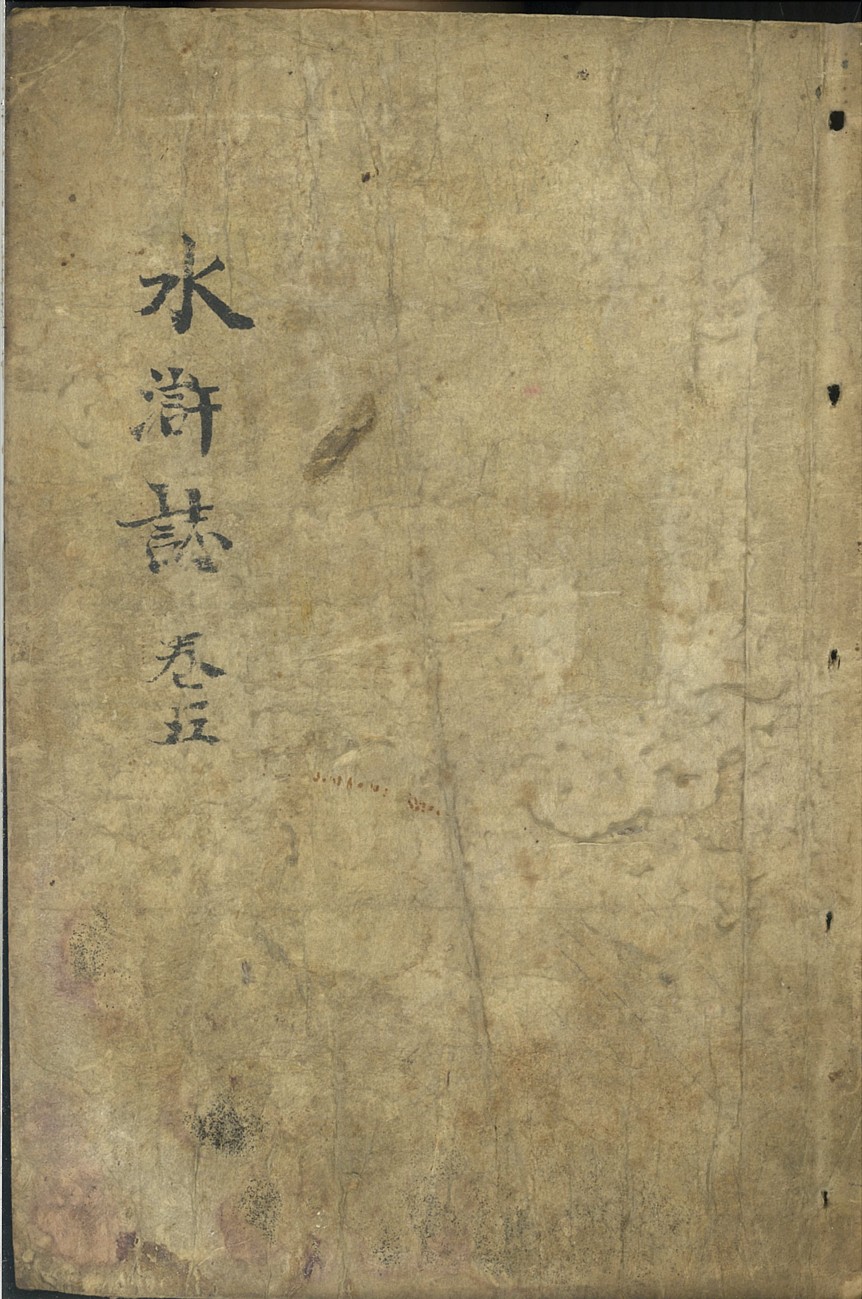 水滸誌 卷五